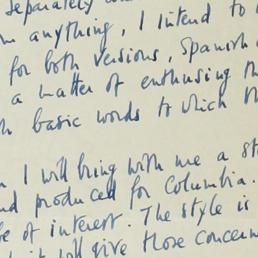 separately
anything, I intend to
for both versions, Spanish
a matter of enthusing
basic words to which
I will bring with me a
produced for Columbia.
of interest. The style is
it will give those concern